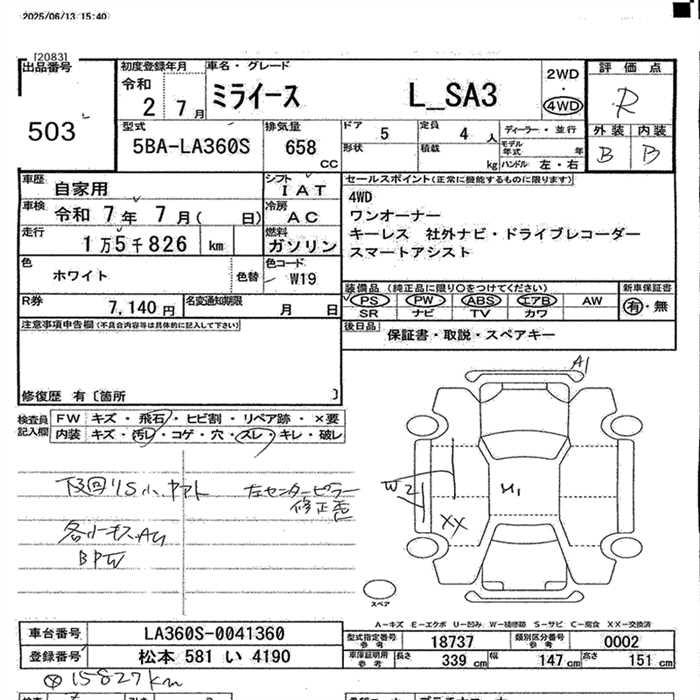 2025/06/13 15:40
[2083]
出品番号
503
初度登録年月
令和
2 7月
車名・グレード
ミライース L_SA3
2WD
・
4WD
評価点
R
外装 内装
B B
型式
5BA-LA360S
排気量
658 cc
ドア 5
定員 4 人
ディーラー・並行
形状
積載 kg
モデル年式 年
ハンドル 左・右
車歴
自家用
シフト
IAT
車検
令和 7年 7月( 日)
冷房
AC
走行
1万5千826 km
燃料
ガソリン
色
ホワイト
色替
色コード
W19
R券
7,140円
名変通知期限
月 日
セールスポイント(正常に機能するものに限ります)
4WD
ワンオーナー
キーレス 社外ナビ・ドライブレコーダー
スマートアシスト
装備品 (純正品に限り〇をつけてください)
新車保証書
PS PW ABS エアB AW
SR ナビ TV カワ
有・無
後日品
保証書・取説・スペアキー
注意事項申告欄(不具合内容等は具体的に記入して下さい)
修復歴 有〔箇所 〕
検査員
記入欄
FW キズ・飛石・ヒビ割・リペア跡・×要
内装 キズ・汚レ・コゲ・穴・スレ・キレ・破レ
下回りS小、ヤケト
左センターピラー
修正歪
各小キズ、AU
BPW
A1
W2
XX
U1
スペア
A―キズ E―エクボ U―凹み W―補修跡 S―サビ C―腐食 XX―交換済
車台番号 LA360S-0041360
登録番号 松本 581 い 4190
型式指定番号
参考
18737
類別区分番号
参考
0002
車庫証明用
参考
長さ 339 cm 幅 147 cm 高さ 151 cm
⊗15827km